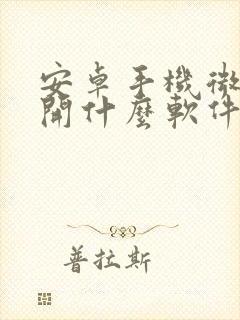 安卓手機微
開什麼軟件
普拉斯